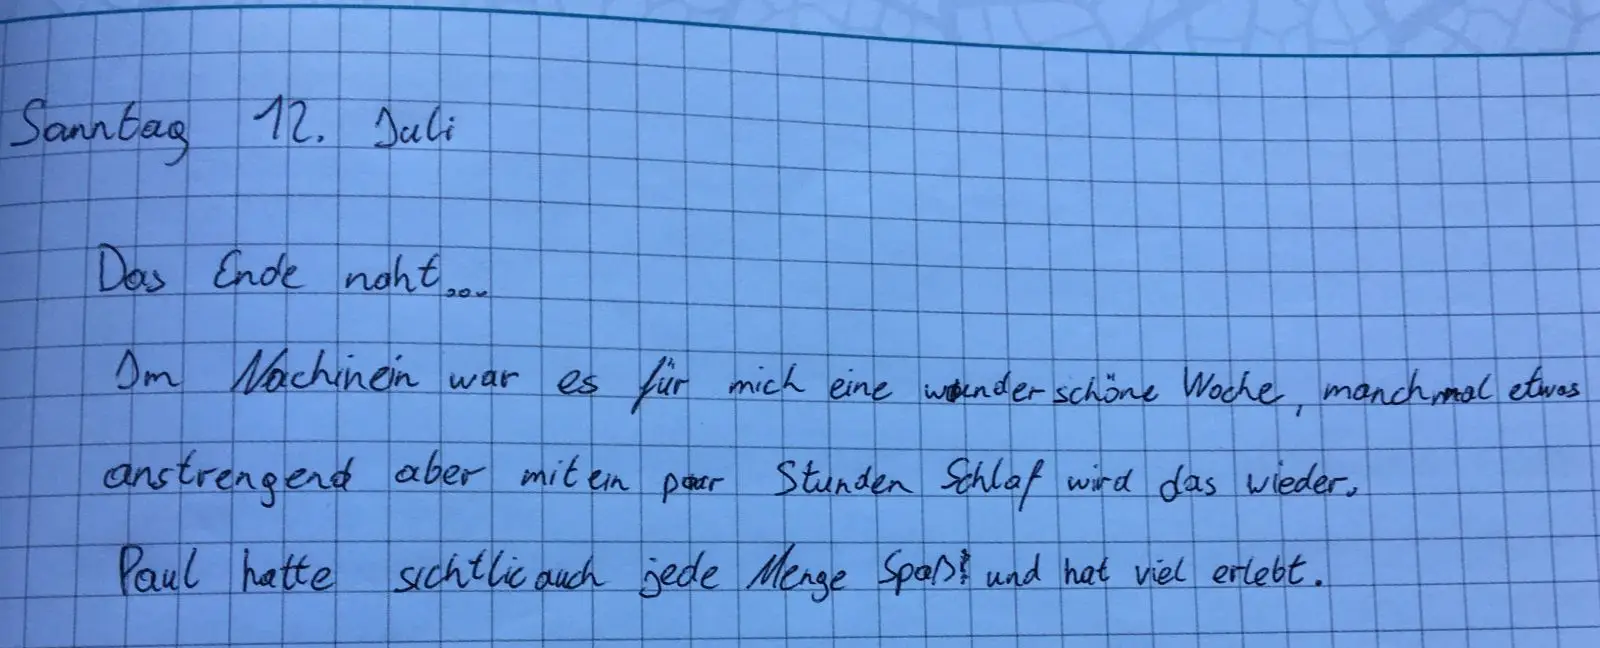 Sonntag 12. Juli
Das Ende naht...
Im Nachinein war es für mich eine wunderschöne Woche, manchmal etwas
anstrengend aber mit ein paar Stunden Schlaf wird das wieder.
Paul hatte sichtlic auch jede Menge Spaß! und hat viel erlebt.